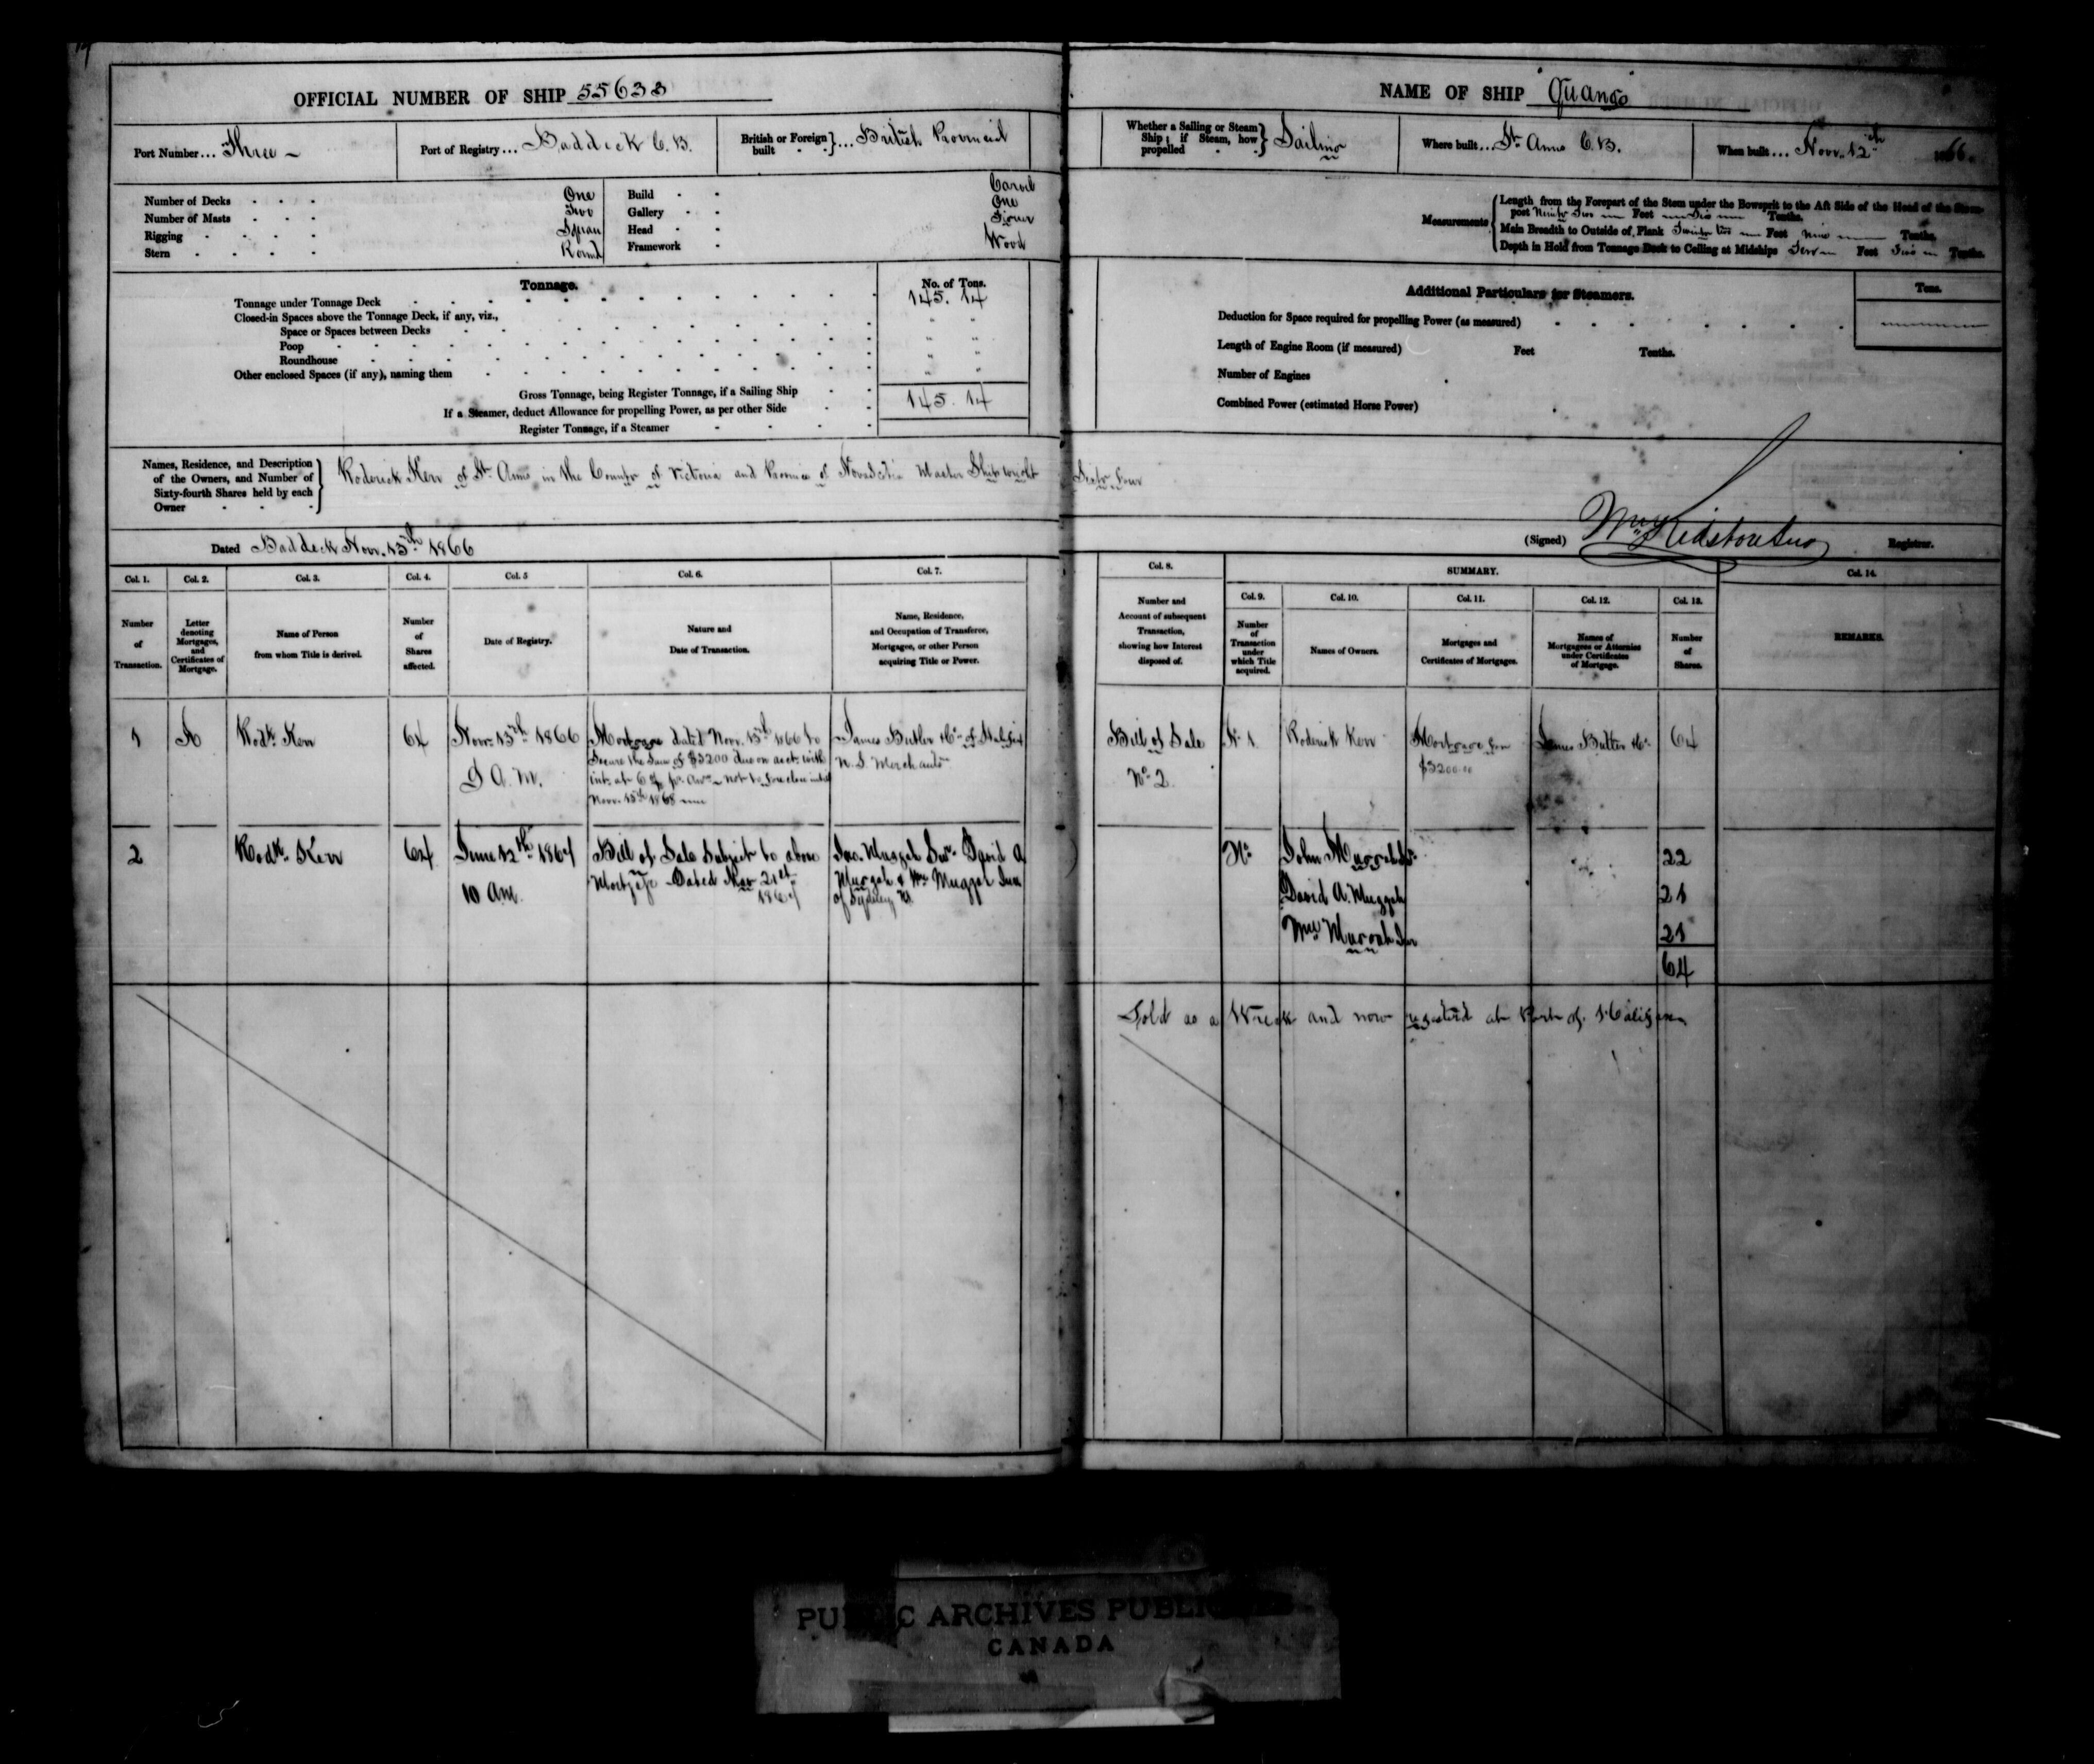 OFFICIAL NUMBER OF SHIP 55633
Port Number... Three
Port of Registry... Baddeck C.B.
British or Foreign built } ... British Provincial
Number of Decks One
Number of Masts Two
Rigging Square
Stern Round
Build Carvel
Gallery One
Head
Framework Wood
Tonnage.
No. of Tons.
Tonnage under Tonnage Deck 145. 14
Closed-in Spaces above the Tonnage Deck, if any, viz.,
Space or Spaces between Decks " "
Poop " "
Roundhouse " "
Other enclosed Spaces (if any), naming them " "
Gross Tonnage, being Register Tonnage, if a Sailing Ship 145. 14
If a Steamer, deduct Allowance for propelling Power, as per other Side
Register Tonnage, if a Steamer
NAME OF SHIP
Whether a Sailing or Steam Ship; if Steam, how propelled } Sailing
Where built... St. Anns C.B.
When built... Novr. 12th 1866.
Measurements
Length from the Forepart of the Stem under the Bowsprit to the Aft Side of the Head of the Stern-
post Ninety Two Feet Tenths.
Main Breadth to Outside of Plank Twenty two Feet Nine Tenths.
Depth in Hold from Tonnage Deck to Ceiling at Midships Feet Tenths.
Additional Particulars for Steamers.
Tons.
Deduction for Space required for propelling Power (as measured)
Length of Engine Room (if measured) Feet Tenths.
Number of Engines
Combined Power (estimated Horse Power)
Names, Residence, and Description of the Owners, and Number of Sixty-fourth Shares held by each Owner } Roderick Kerr of St. Anns in the County of Victoria and Province of Nova Scotia Master Shipwright Sixty four
Dated Baddeck Novr. 15th 1866
(Signed) Wm Kidston Registrar.
Col. 1. Col. 2. Col. 3. Col. 4. Col. 5 Col. 6. Col. 7.
Number of Transaction.
Letter denoting Mortgages, and Certificates of Mortgage.
Name of Person from whom Title is derived.
Number of Shares affected.
Date of Registry.
Nature and Date of Transaction.
Name, Residence, and Occupation of Transferee, Mortgagee, or other Person acquiring Title or Power.
Col. 8.
Number and Account of subsequent Transaction, showing how Interest disposed of.
SUMMARY.
Col. 9. Col. 10. Col. 11. Col. 12. Col. 13. Col. 14.
Number of Transaction under which Title acquired.
Names of Owners.
Mortgages and Certificates of Mortgages.
Names of Mortgagees or Attornies under Certificates of Mortgage.
Number of Shares.
REMARKS.
1 A Rodk. Kerr 64
Novr 15th 1866
9 A.M.
Mortgage dated Novr. 15th 1866 to
Secure the Sum of $3200 due on acct. with
int. at 6 % pr. Ann. not to foreclose until
Novr. 15th 1868
James Butler & Co. of Halifax
N.S. Merchants
Bill of Sale
No. 2
No. 1 Roderick Kerr
Mortgage for
$3200.00
James Butler & Co. 64
2 Rodk. Kerr 64
June 12th 1867
10 am.
Bill of Sale Subject to above
Mortgage Dated 21st
1867
Jno. Muggah Senr. David A
Muggah & Wm. Muggah
of Sydney
No.
John Muggah Sr. 22
David A. Muggah 21
Wm Muggah 21
64
Sold as a Wreck and now registered at Port of
PUBLIC ARCHIVES PUBLI
CANADA